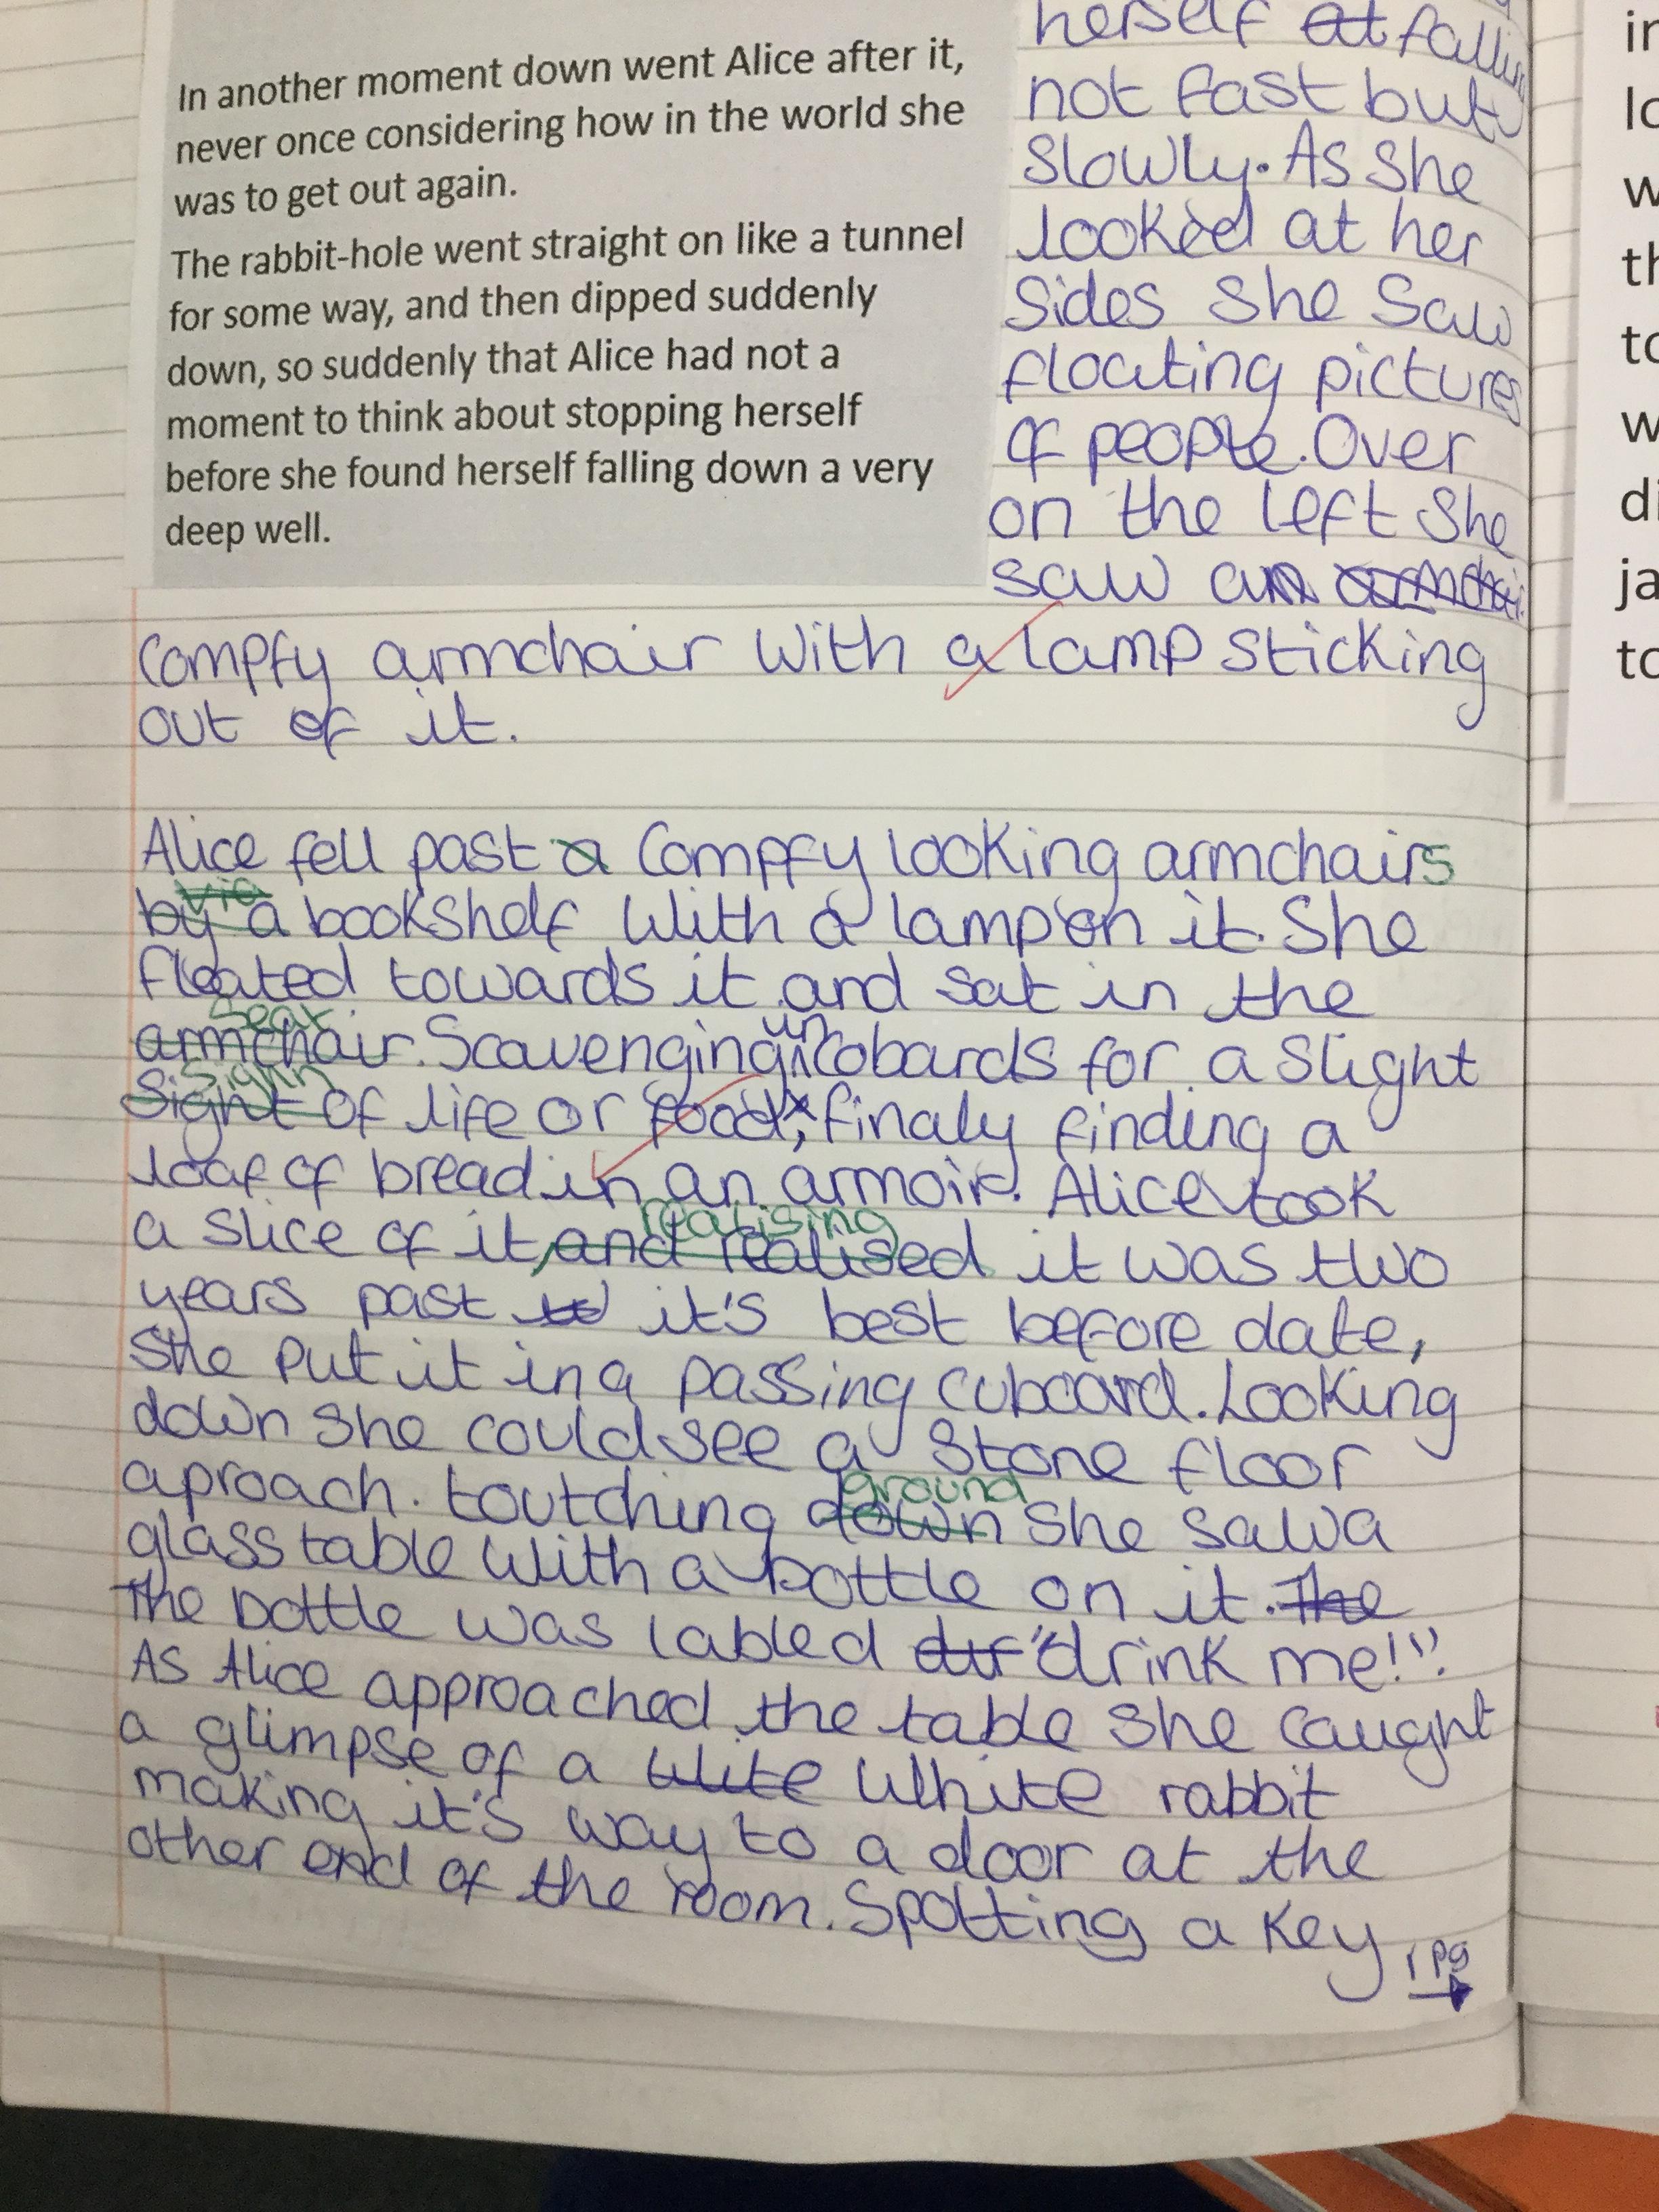 In another moment down went Alice after it,
never once considering how in the world she
was to get out again.
The rabbit-hole went straight on like a tunnel
for some way, and then dipped suddenly
down, so suddenly that Alice had not a
moment to think about stopping herself
before she found herself falling down a very
deep well.
herself at falling
not fast but
slowly. As she
looked at her
sides she saw
floating pictures
of people. Over
on the left she
saw an armchair
Compfy armchair with a lamp sticking
out of it.
Alice fell past a Compfy looking armchairs
via
by a bookshelf with a lamp on it. She
floated towards it and sat in the
seat
armchair. Scavenging in cobards for a slight
signn
sight of life or food, finaly finding a
loaf of bread in an armoir. Alice took
realising
a slice of it, and realised it was two
years past it's best before date,
she put it in a passing cuboard. Looking
down she could see a stone floor
ground
aproach. toutching down she saw a
glass table with a bottle on it. The
The bottle was labled "drink me!".
As Alice approached the table she caught
a glimpse of a wite White rabbit
making it's way to a door at the
other end of the room. Spotting a key
1 pg
in
lo
w
th
to
w
di
ja
to